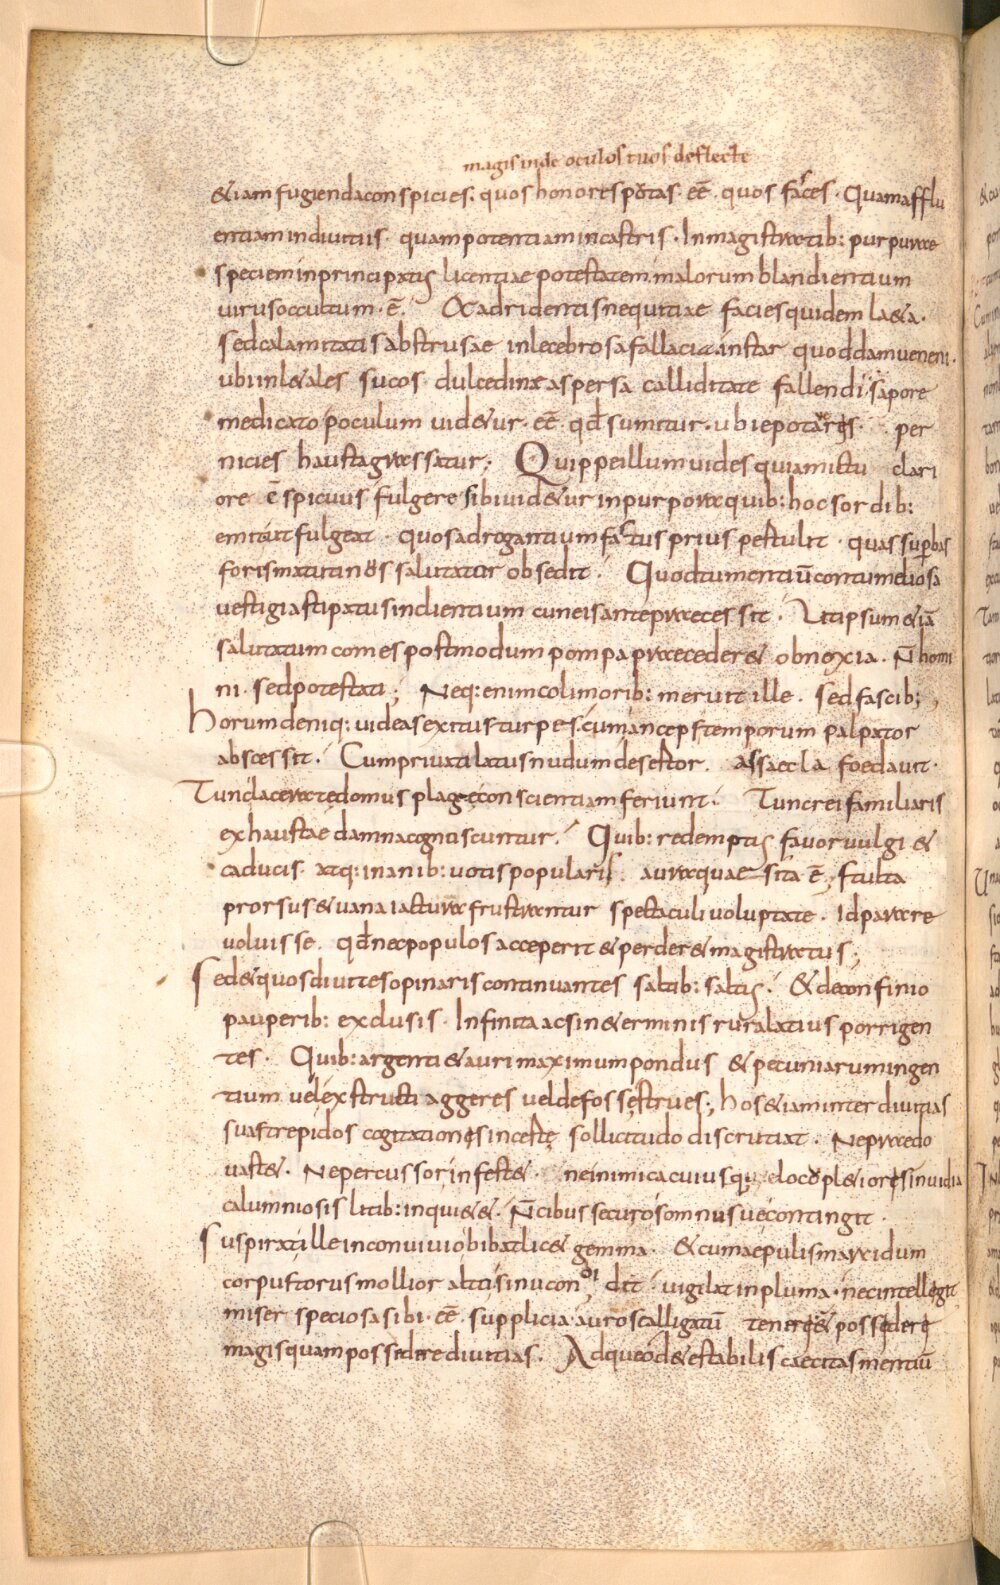 magis inde oculos tuos deflecte
&iam fugienda conspicies. quos honores potas. eē. quos fasces. Quam afflu
entiam in diuitiis. quam potentiam in castris. In magistratib: purpurae
speciem in principatus licentiae potestatem. malorum blandientium
uirus occultum. ē. & adridentis nequitiae facies quidem la&a.
sed calamitatis abstrusae inlecebrosa fallacia. instar quoddam ueneni.
ubi in l&ales sucos dulcedine aspersa calliditate fallendi sapore
medicato poculum uid&ur. eē. qđ sumitur. ubi epotaueris. per
nicies hausta grassatur; Quippe illum uides qui amictu clari
ore cōspicuus fulgere sibi uid&ur in purpora quib: hoc sordib:
emit ut fulgeat. quos adrogantium fastus prius pertulit. quas superbas
fores matutinos salutatur obsedit. Quod tumentiū contumeliosa
uestigia stipatus in clientium cuneis ante praecessit. Ut ipsum &iā
salutatum comes postmodum pompa praeceder& obnoxia. N̄ homi
ni. sed potestati; Neq: enim coli morib: meruit ille. sed fascib;
horum deniq: uideas exitus turpes. cum anceps temporum palpator
abscessit. Cum priuati latus nudum desertor. assaecla foedauit.
Tunc laceratę domus plagę conscientiam feriunt. Tunc rei familiaris
exhaustae damna cognoscuntur. Quib: redemptus fauor uulgi &
caducis atq: inanib: uotis popularis. aura quaesita ē, stulta
prorsus & uana iactura frustrantur spectaculi uoluptate. Id parare
uoluisse. qđ nec populos acceperit & perder& magistratus;
Sed & quos diuites opinaris continuantes saltib: saltus. & de confinio
pauperib: exclusis. Infinita ac sine terminis rura latius porrigen
tes. Quib: argenti & auri maximum pondus & pecuniarum ingen
tium uel exstructi aggeres uel defossę strues; hos &iam inter diuitias
suas trepidos cogitationis incertę sollicitudo discrutiat. Ne praedo
uast&. Ne percussor infest&. ne inimica cuiusq; locopl&ioris inuidia
calumniosis litib: inqui&&. N̄ cibus securo somnusue contingit.
Suspirat ille in conuiuio bibat lic& gemma. & cum aepulis marcidum
corpus torus mollior alto sinu condit. uigilat in pluma. nec intellegit
miser speciosa sibi. eē. supplicia. auro se alligatū teneri & possederi
magis quam possedere diuitias. Adque o d&estabilis caecitas mentiū